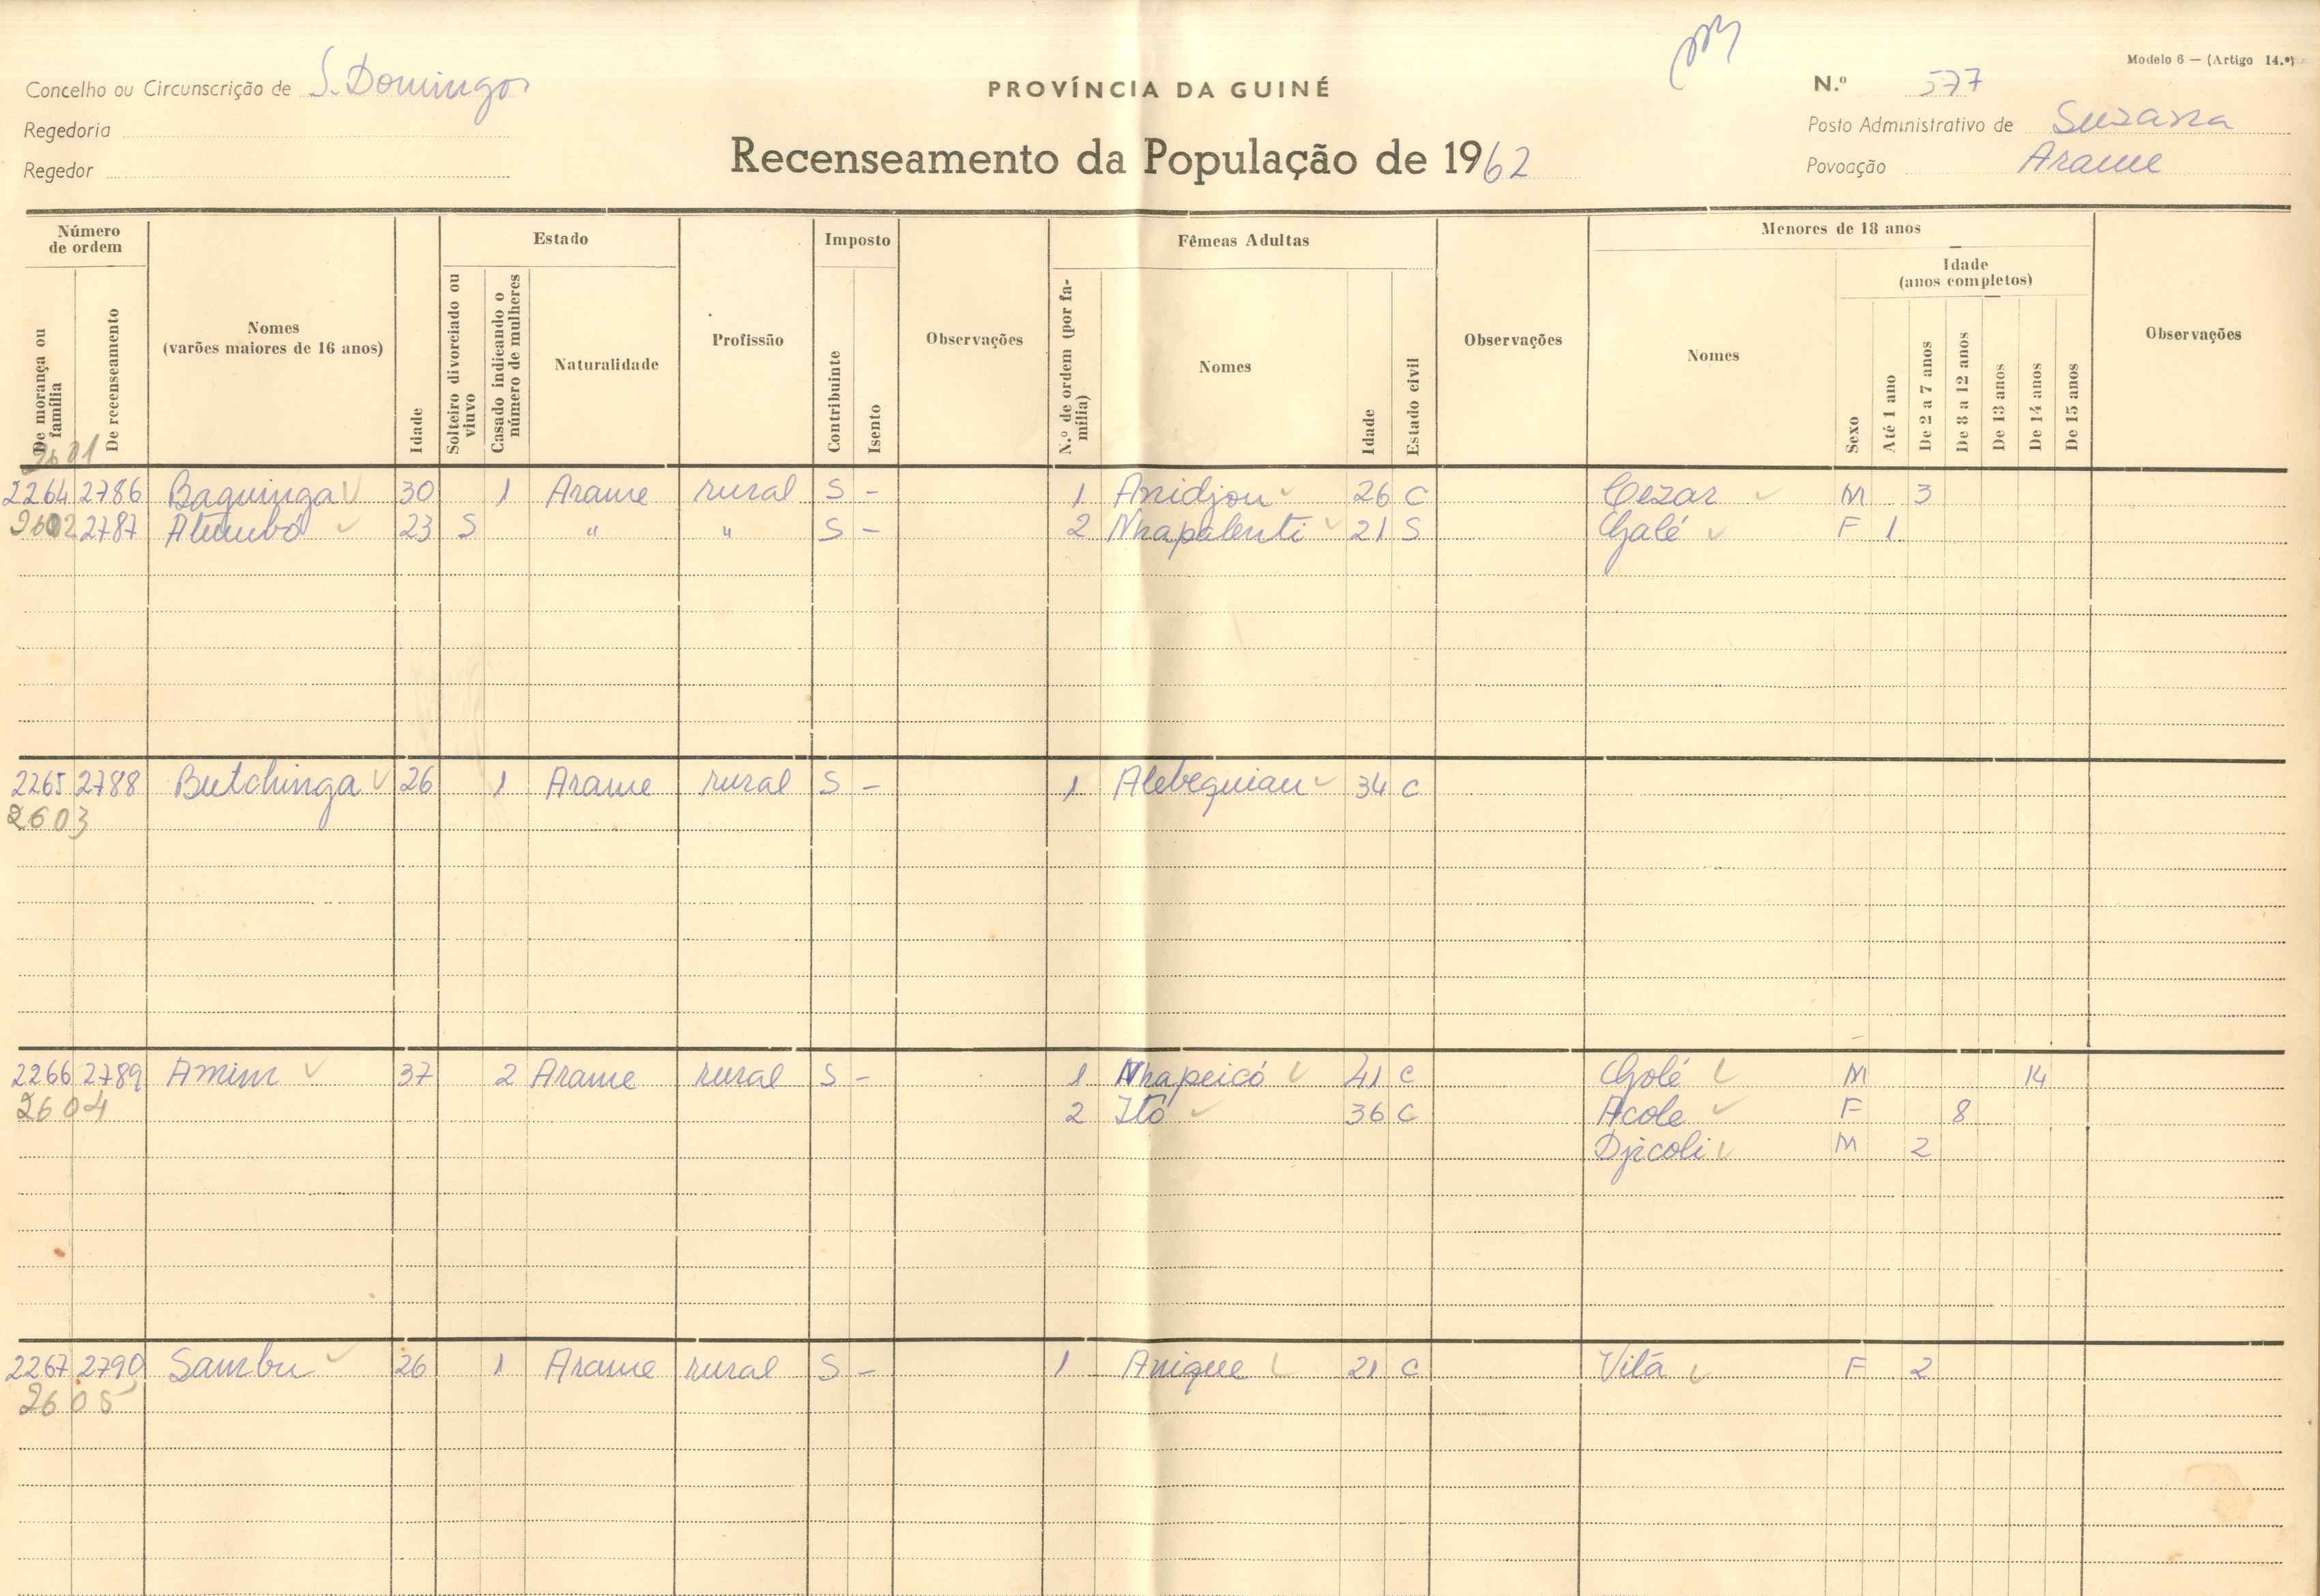 Modelo 6 — (Artigo 14.º)
Concelho ou Circunscrição de S. Domingos
PROVÍNCIA DA GUINÉ
N.º 577
Regedoria
Posto Administrativo de Suzana
Regedor
Recenseamento da População de 1962
Povoação Arame
Número de ordem
De morança ou família
De recenseamento
Nomes
(varões maiores de 16 anos)
Idade
Estado
Solteiro divorciado ou viuvo
Casado indicando o número de mulheres
Naturalidade
Profissão
Imposto
Contribuinte
Isento
Observações
Fêmeas Adultas
N.º de ordem (por família)
Nomes
Idade
Estado civil
Observações
Menores de 18 anos
Nomes
Sexo
Idade
(anos completos)
Até 1 ano
De 2 a 7 anos
De 8 a 12 anos
De 13 anos
De 14 anos
De 15 anos
Observações
2601
2264 2786 Baguinga 30 1 Arame rural S - 1 Anidjou 26 C Cezar M 3
2602 2787 Atumbó 23 S " " S - 2 Nhapalenti 21 S Galé F 1
2265 2788 Butchinga 26 1 Arame rural S - 1 Alebeguian 34 C
2603
2266 2789 Amim 37 2 Arame rural S - 1 Nhapeicó 41 C Golé M 14
2604 2 Itó 36 C Acole F 8
Djicoli M 2
2267 2790 Sambu 26 1 Arame rural S - 1 Anique 21 C Vitá F 2
2605